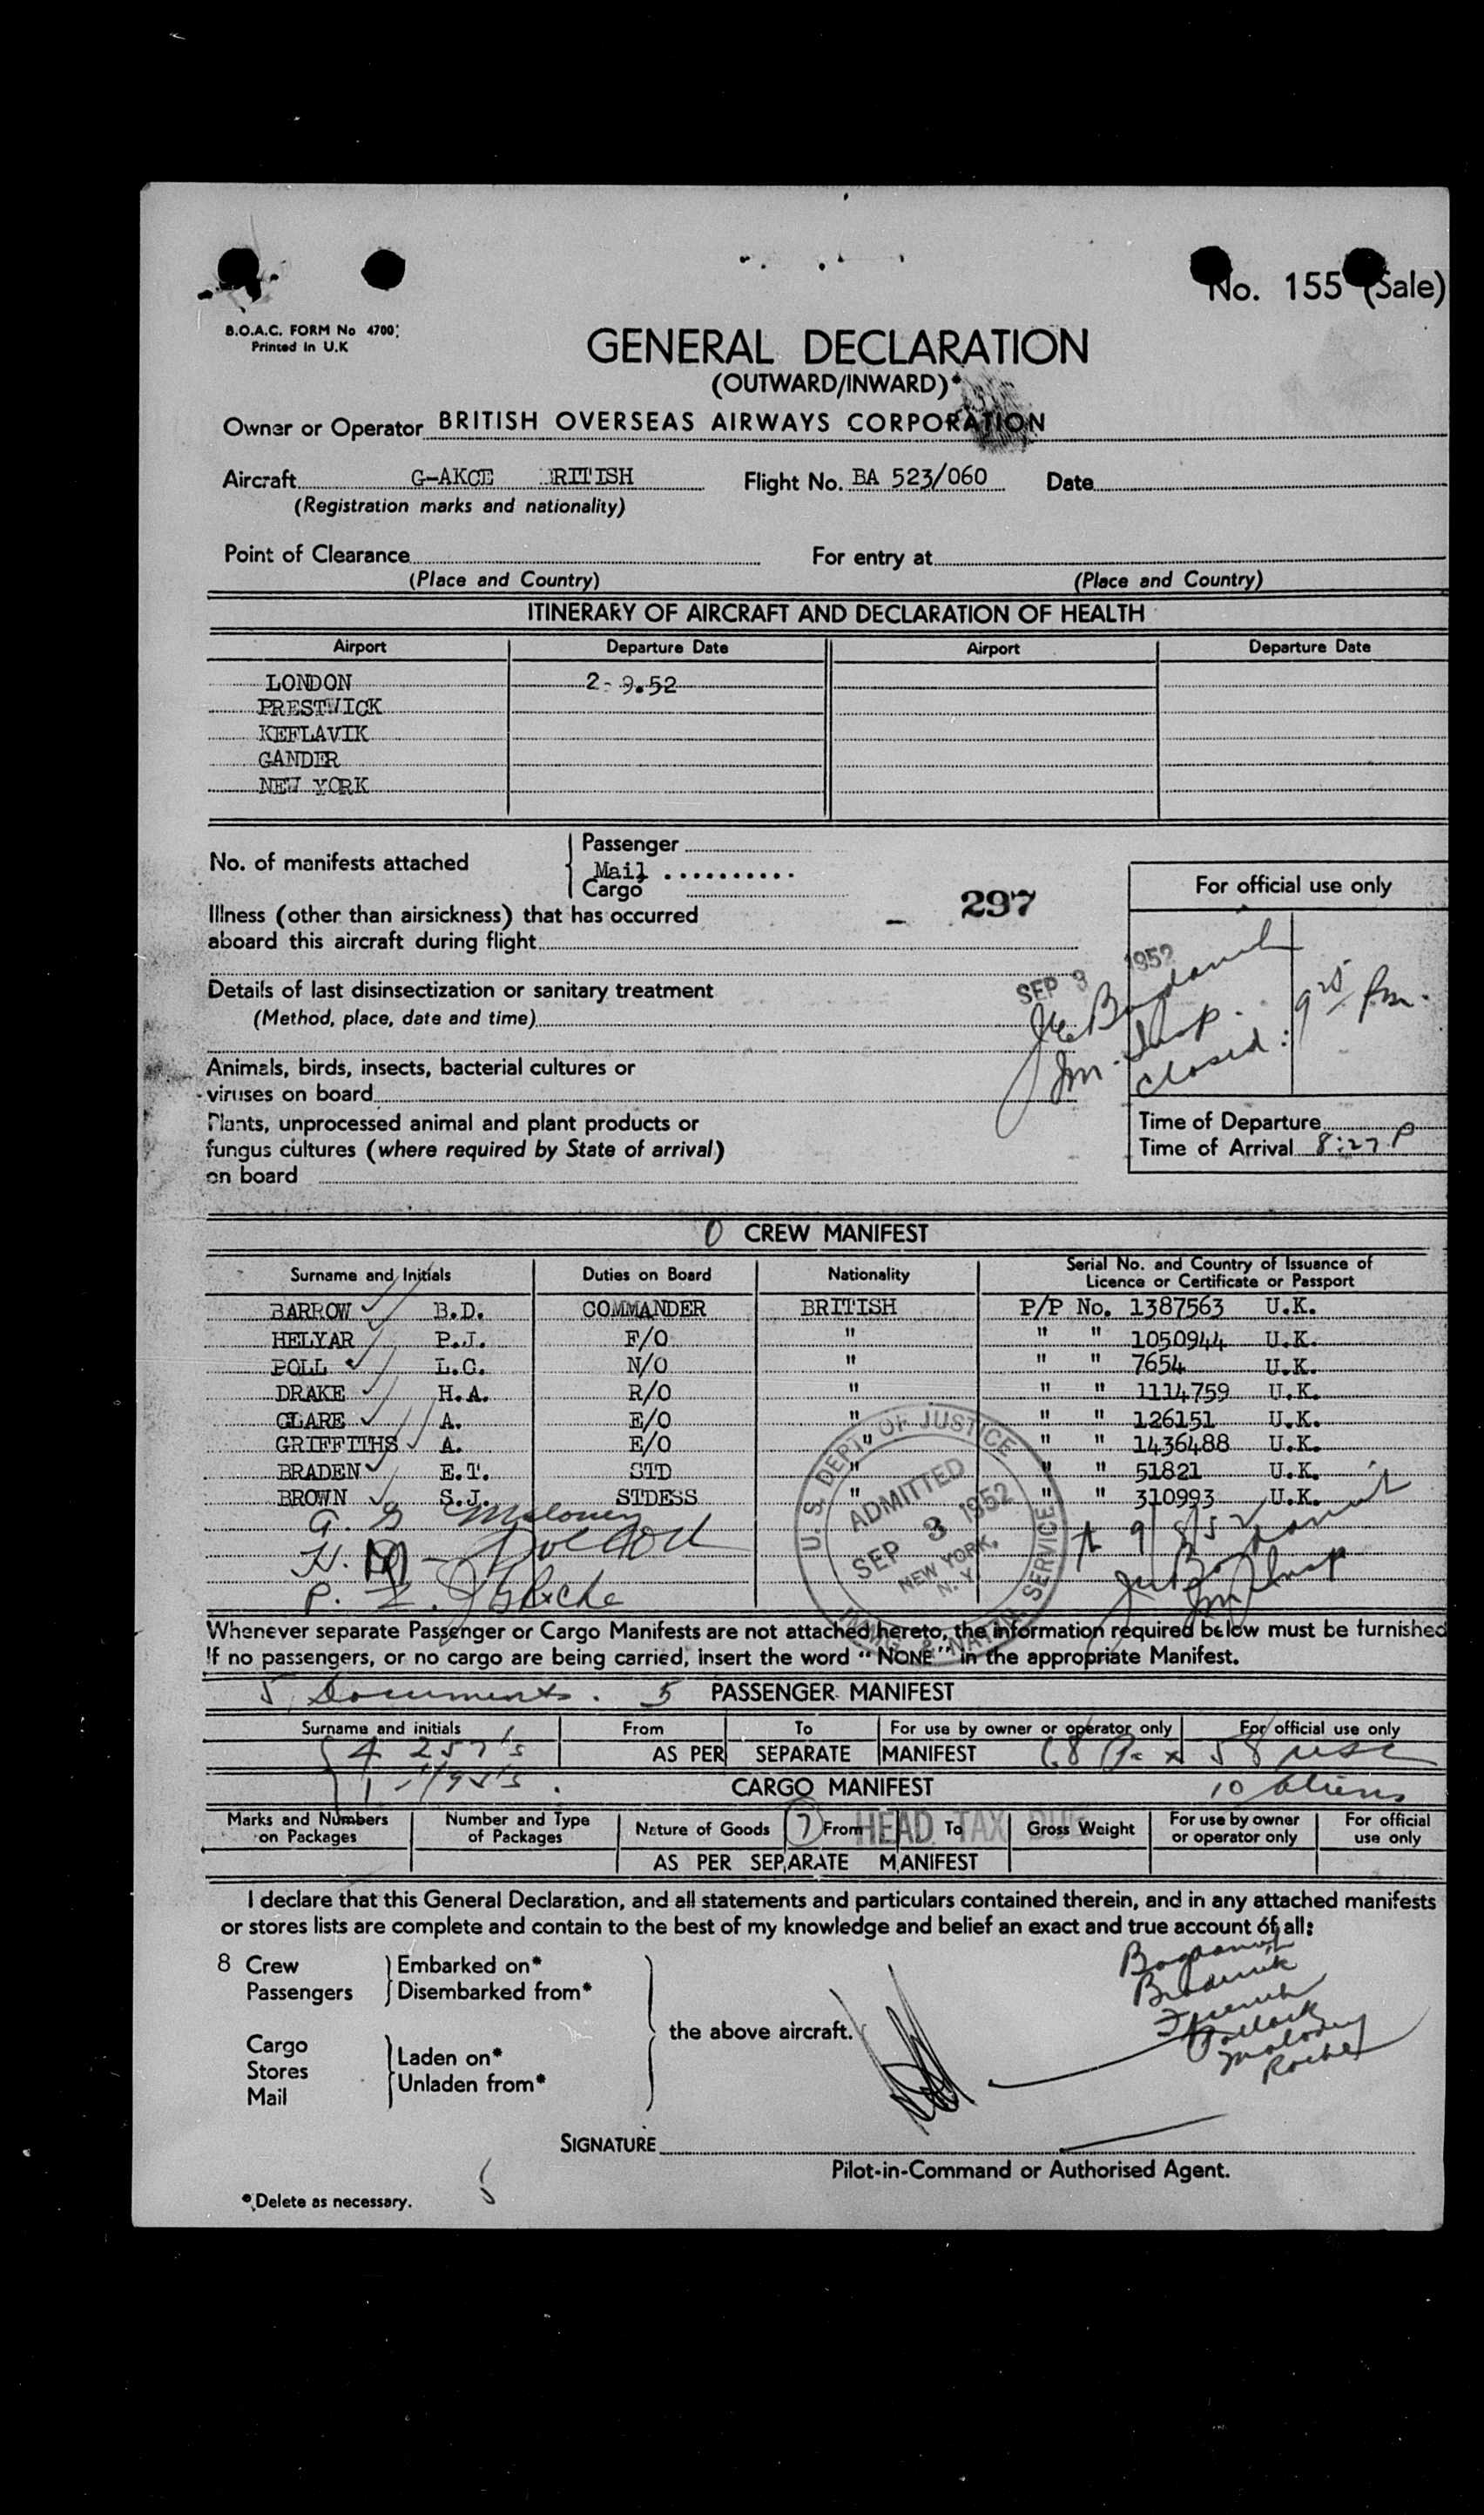 No. 155 (Sale)
B.O.A.C. FORM No 4700
Printed in U.K
GENERAL DECLARATION
(OUTWARD/INWARD)*
Owner or Operator BRITISH OVERSEAS AIRWAYS CORPORATION
Aircraft G-AKCE BRITISH Flight No. BA 523/060 Date
(Registration marks and nationality)
Point of Clearance For entry at
(Place and Country) (Place and Country)
ITINERARY OF AIRCRAFT AND DECLARATION OF HEALTH
Airport Departure Date Airport Departure Date
LONDON 2-9.52
PRESTWICK
KEFLAVIK
GANDER
NEW YORK
No. of manifests attached
Passenger
Mail
Cargo
For official use only
Illness (other than airsickness) that has occurred - 297
aboard this aircraft during flight
SEP 3 1952
Details of last disinsectization or sanitary treatment
(Method, place, date and time)
Im. Insp.
closed: 9 25 Pm.
Animals, birds, insects, bacterial cultures or
viruses on board
Plants, unprocessed animal and plant products or
fungus cultures (where required by State of arrival)
on board
Time of Departure
Time of Arrival 8:27 P
CREW MANIFEST
Surname and Initials Duties on Board Nationality Serial No. and Country of Issuance of Licence or Certificate or Passport
BARROW B.D. COMMANDER BRITISH P/P No. 1387563 U.K.
HELYAR P.J. F/O " " " 1050944 U.K.
POLL L.C. N/O " " " 7654 U.K.
DRAKE H.A. R/O " " " 1114759 U.K.
CLARE A. E/O " " " 126151 U.K.
GRIFFITHS A. E/O " " " 1436488 U.K.
BRADEN E.T. STD " " " 51821 U.K.
BROWN S.J. STDESS " " " 310993 U.K.
U. S. DEPT OF JUSTICE
ADMITTED
SEP 3 1952
NEW YORK, N. Y.
IMMIG. & NATZN. SERVICE
G. Maloney
Whenever separate Passenger or Cargo Manifests are not attached hereto, the information required below must be furnished
If no passengers, or no cargo are being carried, insert the word "NONE" in the appropriate Manifest.
5 Documents. 5 PASSENGER MANIFEST
Surname and initials From To For use by owner or operator only For official use only
4 257's AS PER SEPARATE MANIFEST 68 58 USC
CARGO MANIFEST 10 aliens
Marks and Numbers on Packages Number and Type of Packages Nature of Goods From To Gross Weight For use by owner or operator only For official use only
7 HEAD TAX DUE
AS PER SEPARATE MANIFEST
I declare that this General Declaration, and all statements and particulars contained therein, and in any attached manifests
or stores lists are complete and contain to the best of my knowledge and belief an exact and true account of all:
8 Crew Embarked on*
Passengers Disembarked from*
the above aircraft.
Cargo
Stores
Mail
Laden on*
Unladen from*
Broderick
French
Pollock
Maloney
Roche
SIGNATURE
Pilot-in-Command or Authorised Agent.
5
*Delete as necessary.